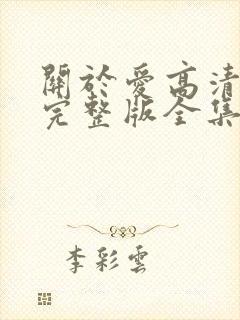 關於愛高清
完整版全集
李彩雲